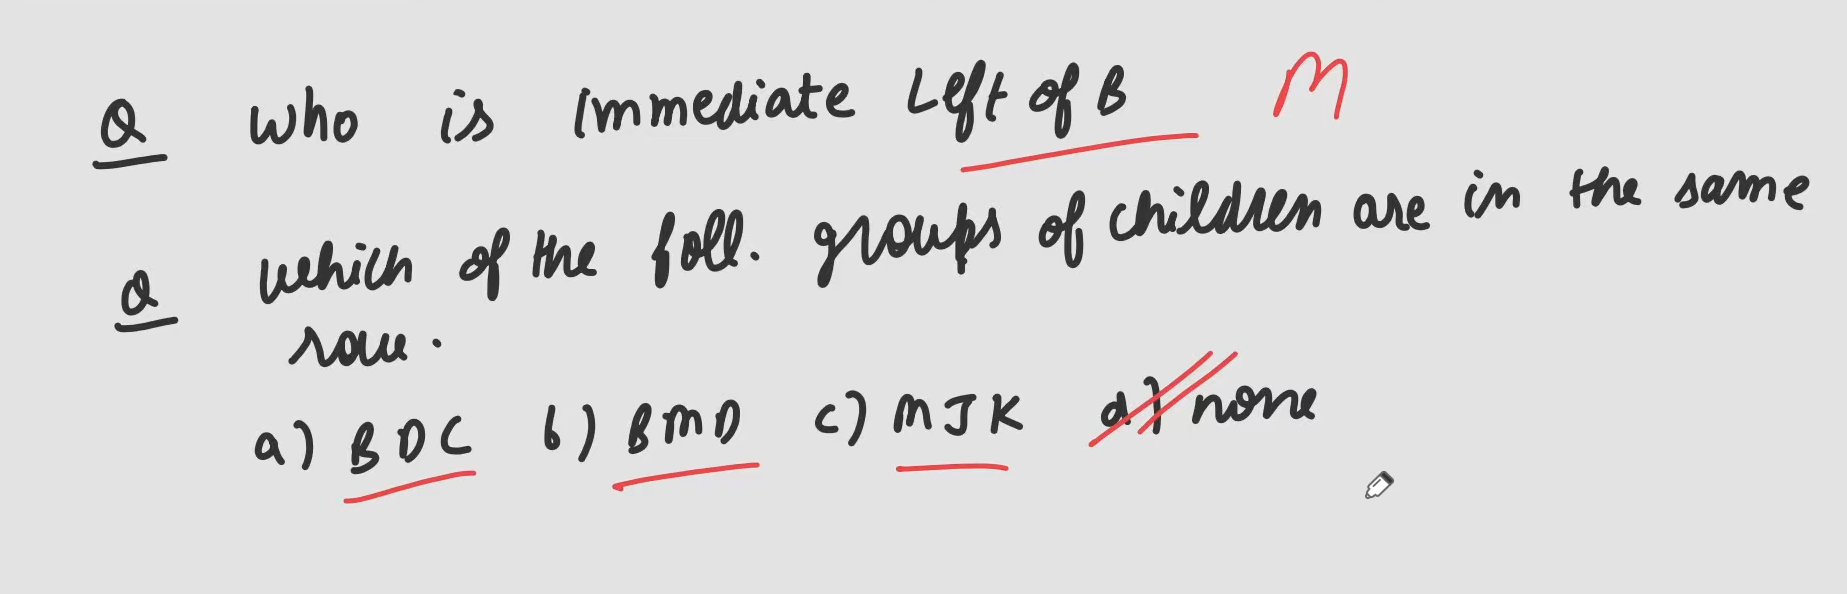 Q Who is Immediate Left of B M
Q which of the foll. groups of children are in the same
row.
a) BDC b) BMD c) MJK d) none